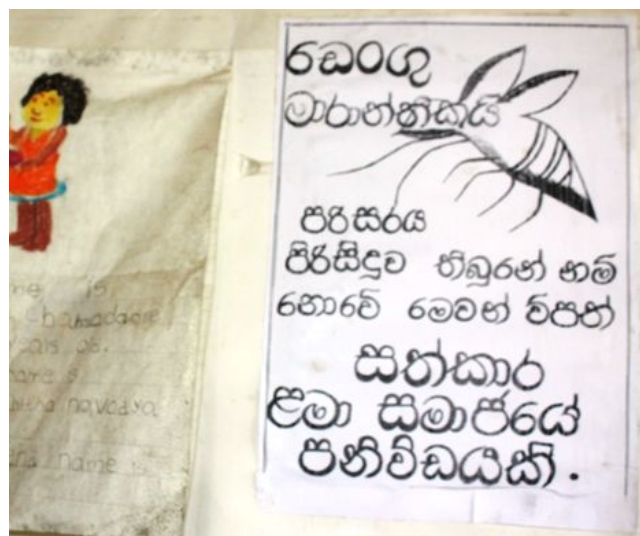 රඩංගු
මාරාන්තිකයි
පරිසරය
පිරිසිදුව තිබුරන් නම්
නොවේ මෙවන් විපත්
සත්කාර
ළමා සමාජයේ
පනිව්ඩයකි.
is
name is
navodya
name is